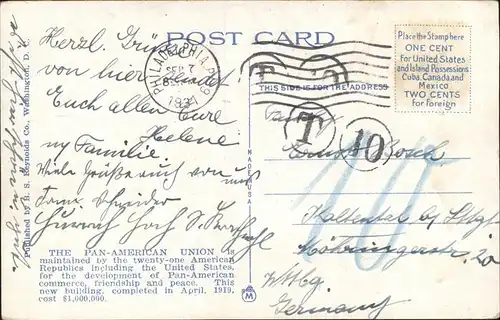 POST CARD
Place the Stamp here
ONE CENT
for United States
and Island Possessions
Cuba, Canada and
Mexico
TWO CENTS
for Foreign
PHILADELPHIA, PA.
SEP 7
1931
THIS SIDE IS FOR THE ADDRESS
T
10
10
Herzl. Grüße
von hier sendet
Euch allen Eure
Helene
ny Familie.
Viele Grüße auch von uns
Heinrich Hoch
Familie
Bosch
Kaltental by Stbgt
20
Wttbg
Germany
MADE IN U.S.A.
M
THE PAN-AMERICAN UNION is
maintained by the twenty-one American
Republics including the United States,
for the development of Pan-American
commerce, friendship and peace. This
new building, completed in April, 1919,
cost $1,000,000.
Published by B. S. Reynolds Co., Washington, D. C.